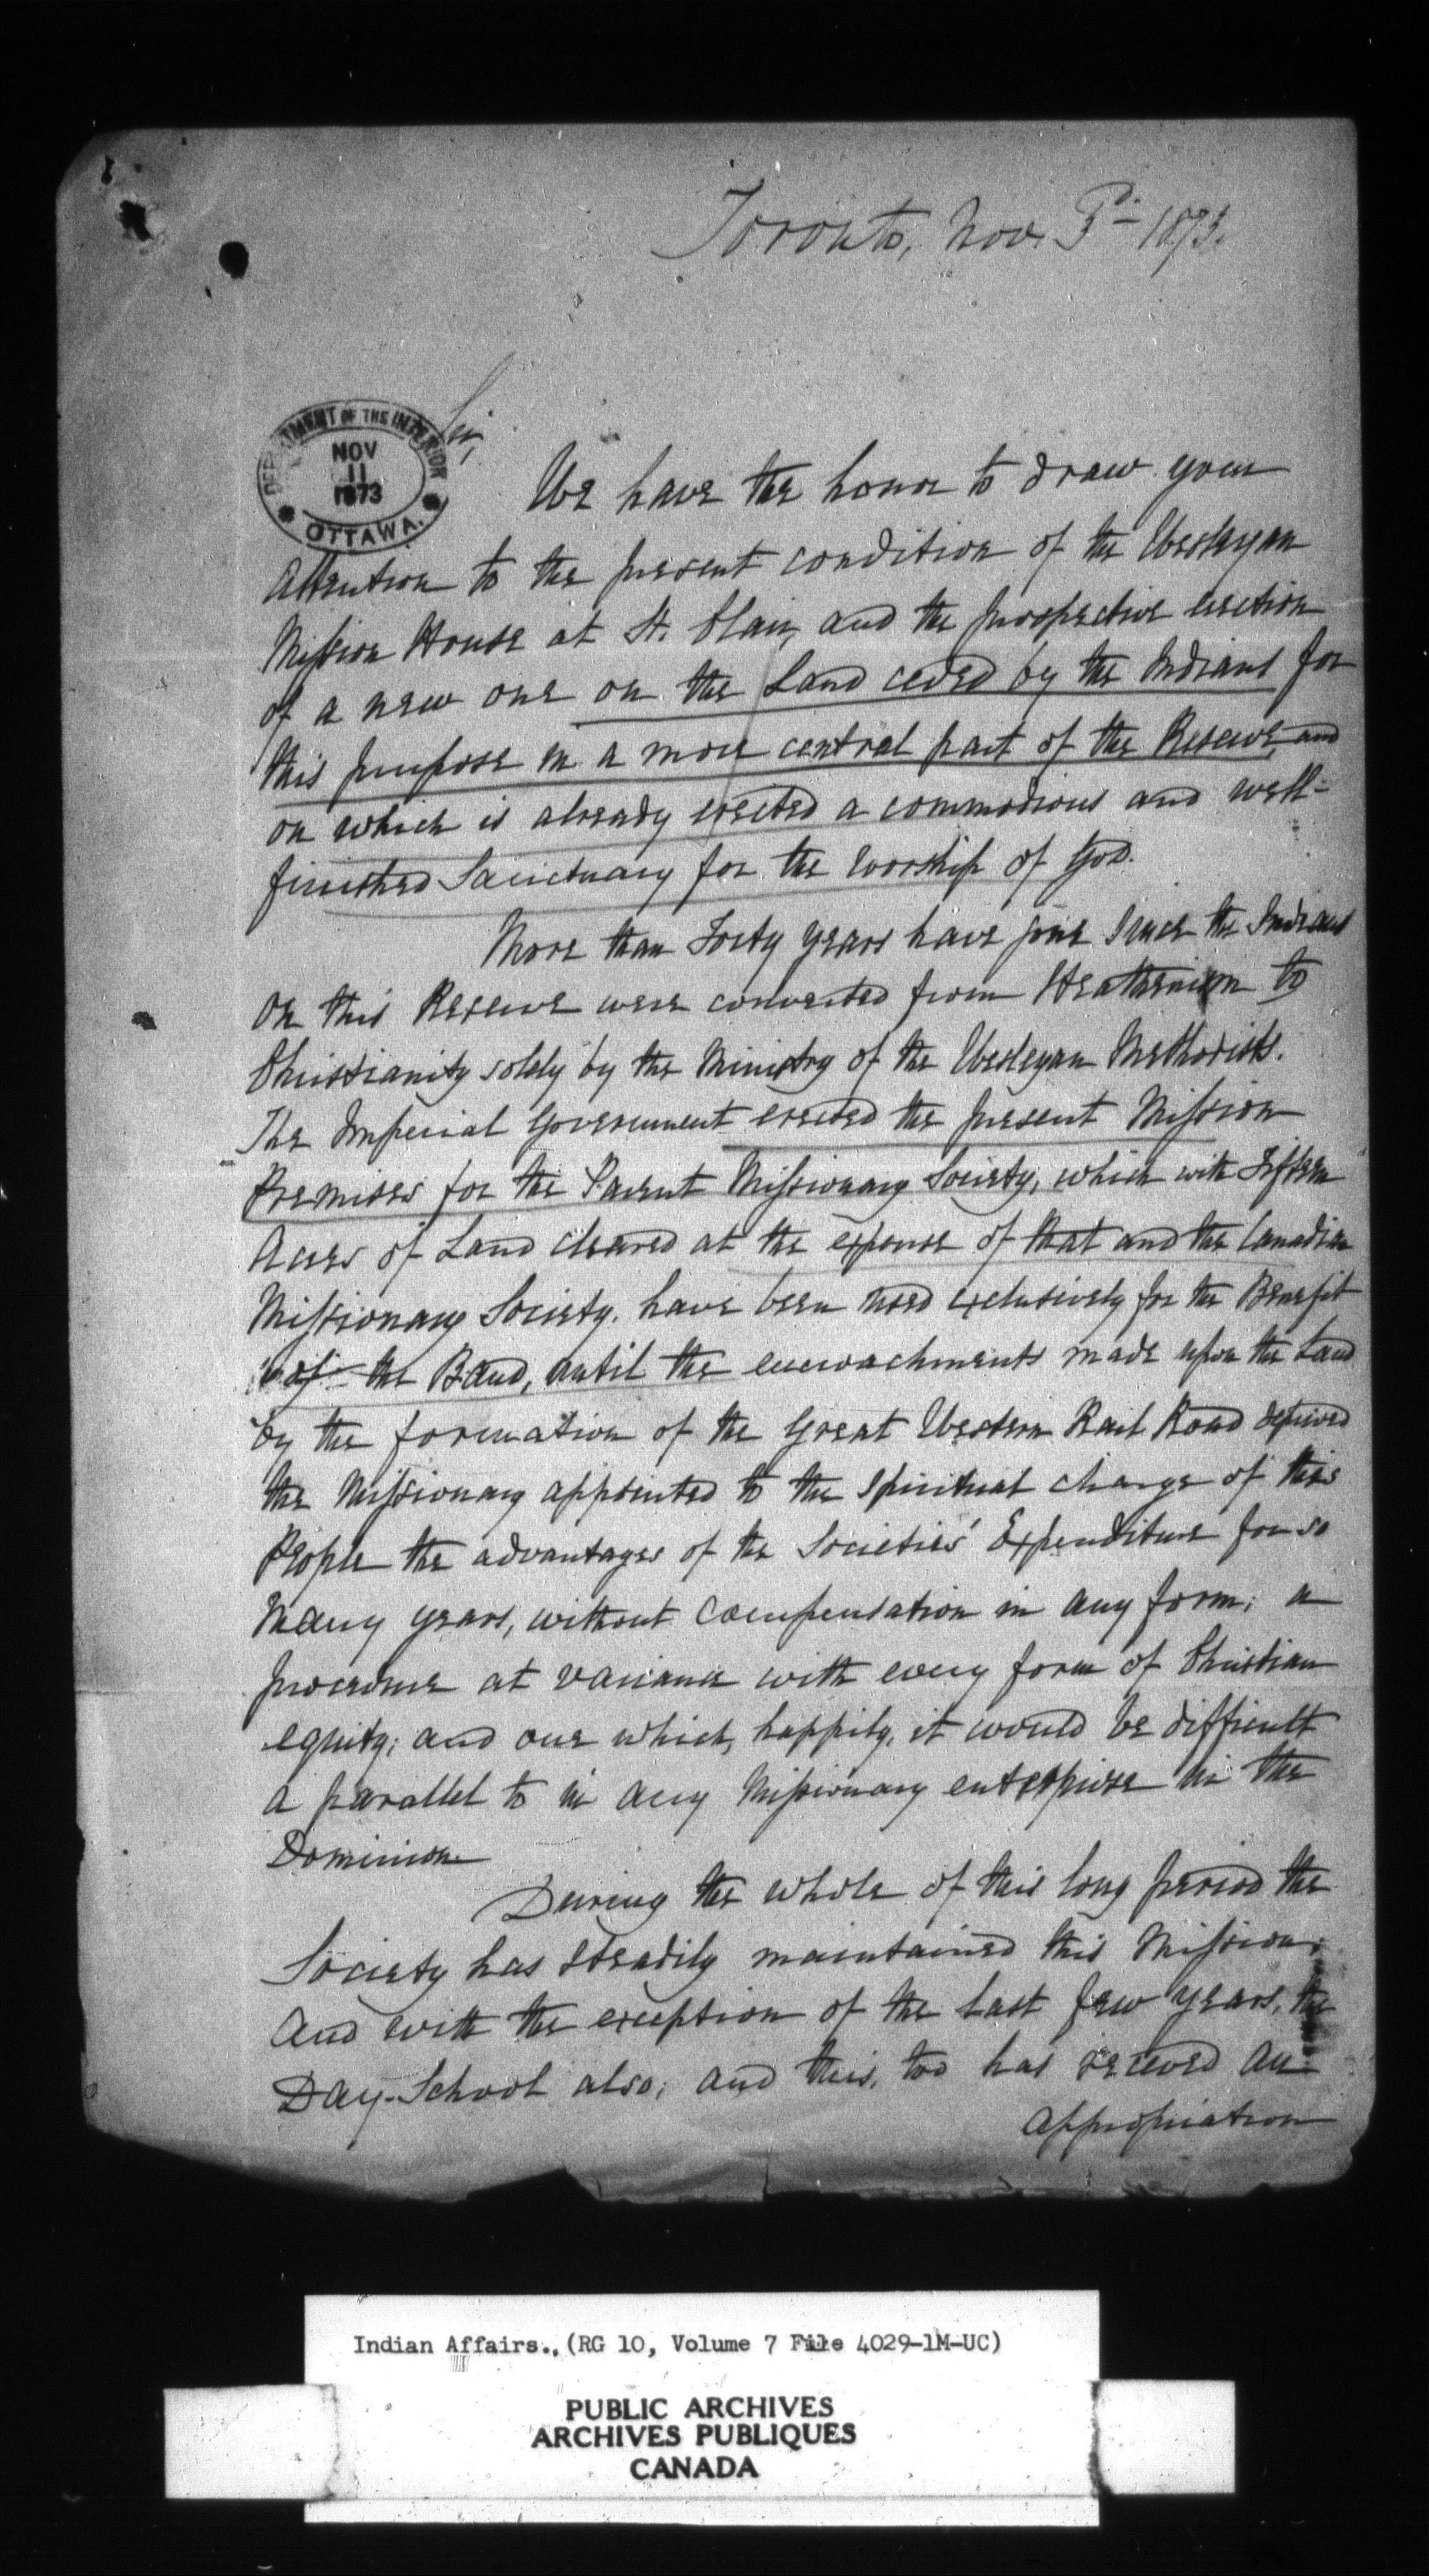 Toronto, Nov. 3d 1873.
Sir,
DEPARTMENT OF THE INTERIOR
NOV
11
1873
OTTAWA.
We have the honor to draw your
attention to the present condition of the Wesleyan
Mission House at St. Clair, and the prospective erection
of a new one on the Land ceded by the Indians for
this purpose in a more central part of the Reserve, and
on which is already erected a commodious and well-
finished Sanctuary for the worship of God.
More than Forty years have gone since the Indians
on this Reserve were converted from Heathenism to
Christianity solely by the Ministry of the Wesleyan Methodists.
The Imperial Government erected the present Mission
Premises for the Parent Missionary Society, which with Fifteen
Acres of Land cleared at the expense of that and the Canadian
Missionary Society, have been used exclusively for the Benefit
of the Band, until the encroachments made upon the Land
by the formation of the Great Western Rail Road deprived
the Missionary appointed to the spiritual charge of this
People the advantages of the Societies' Expenditure for so
many years, without compensation in any form; a
procedure at variance with every form of Christian
equity; and one which, happily, it would be difficult
a parallel to in any Missionary enterprise in the
Dominion.
During the whole of this long period the
Society has steadily maintained this Mission;
and with the exception of the last few years, the
Day-School also; and this, too has received an
appropriation
Indian Affairs. (RG 10, Volume 7 File 4029-1M-UC)
PUBLIC ARCHIVES
ARCHIVES PUBLIQUES
CANADA